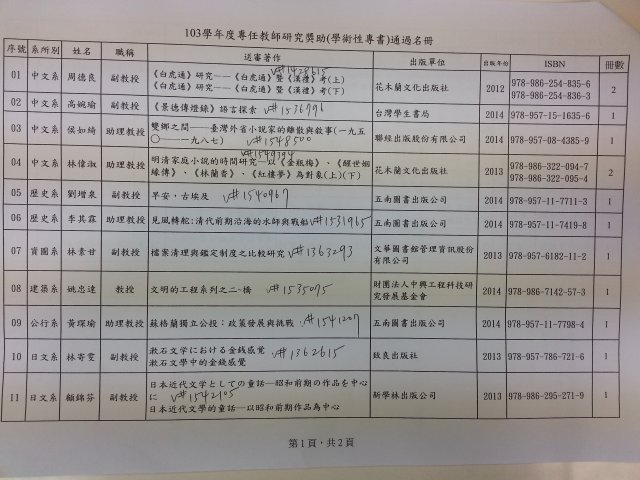 103學年度專任教師研究獎助(學術性專書)通過名冊
序號 系所別 姓名 職稱 送審著作 出版單位 出版年份 ISBN 冊數
v#1428615
01 中文系 周德良 副教授 《白虎通》研究——《白虎通》暨《漢禮》考(上) 花木蘭文化出版社 2012 978-986-254-835-6 2
《白虎通》研究——《白虎通》暨《漢禮》考(下) 978-986-254-836-3
02 中文系 高婉瑜 副教授 《景德傳燈錄》語言探索 v#1536996 台灣學生書局 2014 978-957-15-1635-6 1
03 中文系 侯如綺 助理教授 雙鄉之間——臺灣外省小說家的離散與敘事(一九五 聯經出版股份有限公司 2014 978-957-08-4385-9 1
〇——一九八七) v#1548500
v#1549794
04 中文系 林偉淑 助理教授 明清家庭小說的時間研究—以《金瓶梅》、《醒世姻 花木蘭文化出版社 2013 978-986-322-094-7 2
緣傳》、《林蘭香》、《紅樓夢》為對象(上)(下) 978-986-322-095-4
05 歷史系 劉增泉 副教授 早安‧古埃及 v#1540967 五南圖書出版公司 2014 978-957-11-7711-3 1
06 歷史系 李其霖 助理教授 見風轉舵:清代前期沿海的水師與戰船 v#1531965 五南圖書出版公司 2014 978-957-11-7419-8 1
07 資圖系 林素甘 副教授 檔案清理與鑑定制度之比較研究 v#1363293 文華圖書館管理資訊股份 2013 978-957-6182-11-2 1
有限公司
08 建築系 姚忠達 教授 文明的工程系列之二-橋 v#1535075 財團法人中興工程科技研 2014 978-986-7142-57-3 1
究發展基金會
09 公行系 黃琛瑜 助理教授 蘇格蘭獨立公投：政策發展與挑戰 v#1541207 五南圖書出版公司 2014 978-957-11-7798-4 1
10 日文系 林寄雯 副教授 漱石文学における金銭感覚 v#1362615 致良出版社 2013 978-957-786-721-6 1
漱石文學中的金錢感覺
11 日文系 顧錦芬 副教授 日本近代文学としての童話—昭和前期の作品を中心 新學林出版公司 2013 978-986-295-271-9 1
に v#1542105
日本近代文學的童話—以昭和前期作品為中心
第1頁，共2頁